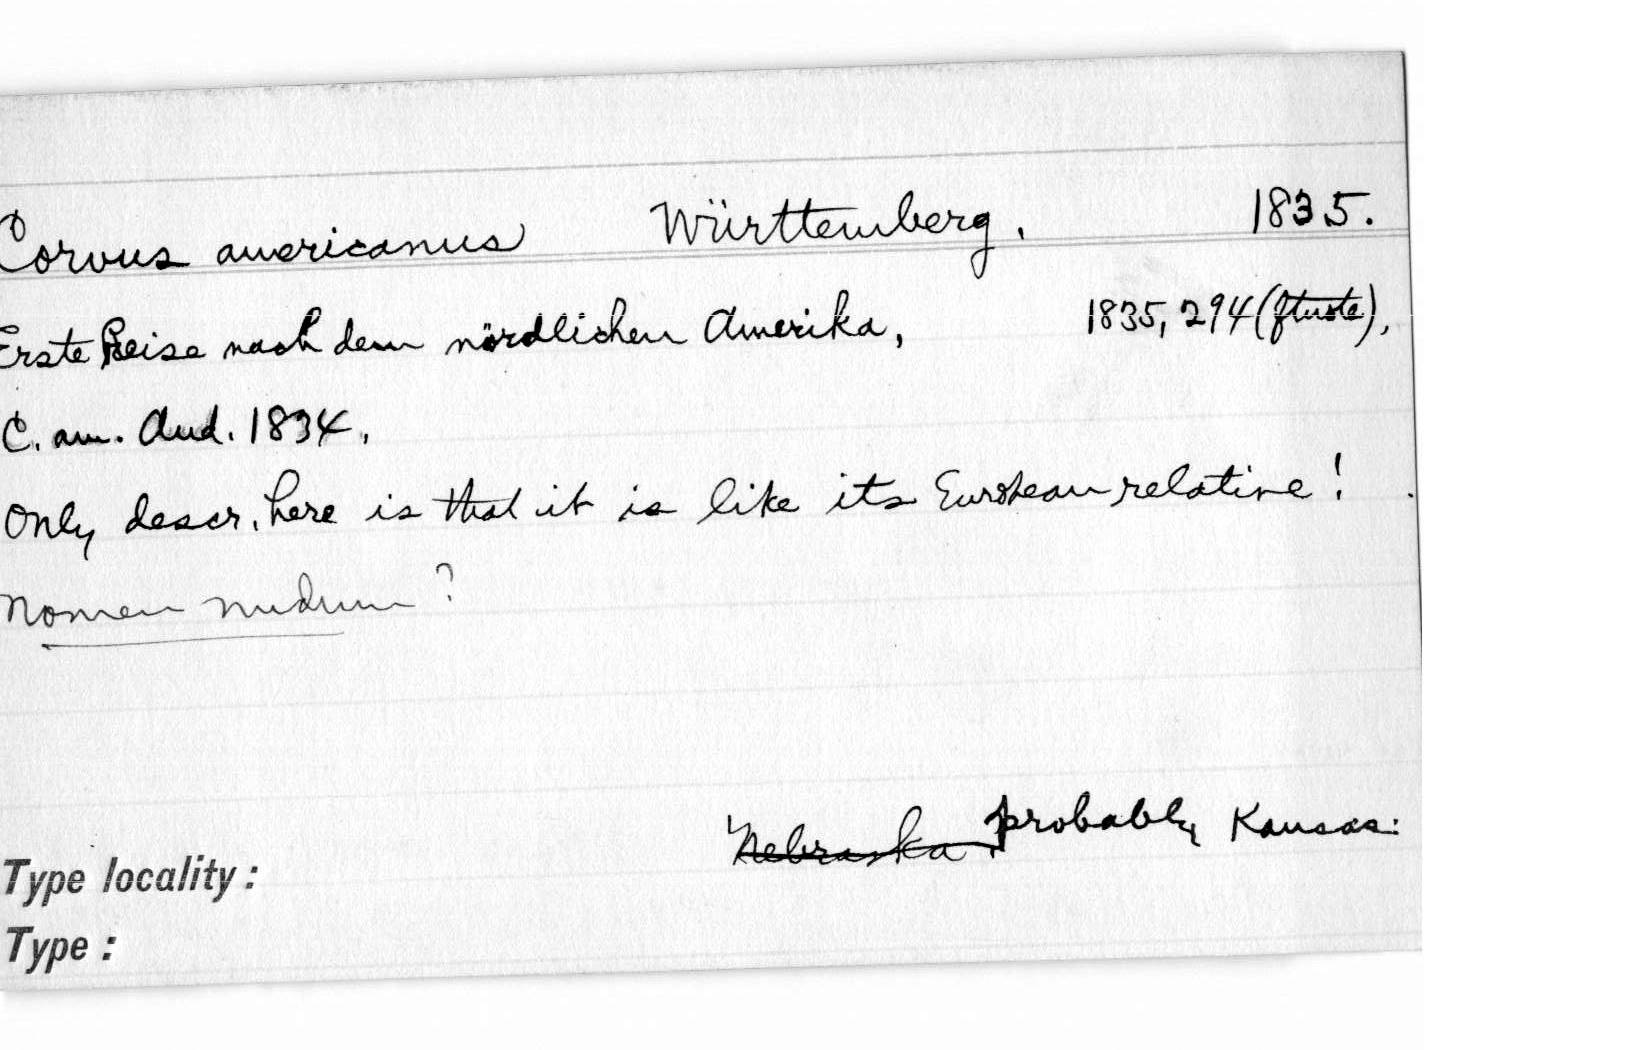 Corvus americanus Württemberg. 1835.
Erste Reise nach dem nördlichen Amerika, 1835, 294 (ftnote),
C. am. Aud. 1834.
Only descr. here is that it is like its European relative!
Nomen nudum?
Nebraska. probably Kansas.
Type locality:
Type: